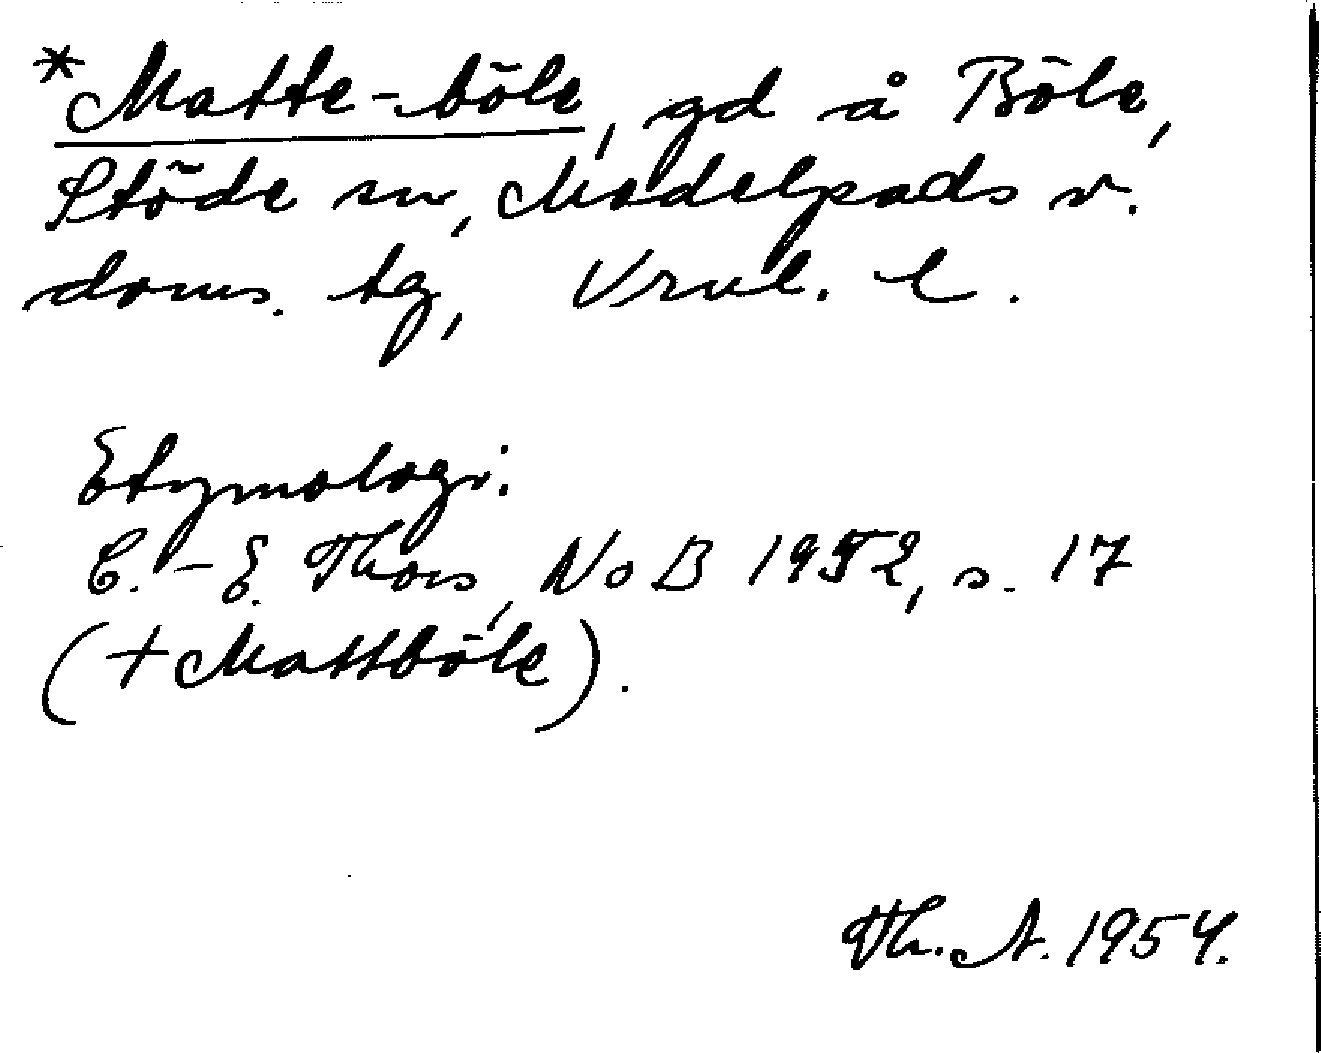 *Matte-böle, gd å Böle,
Stöde sn, Medelpads v.
doms. tg, Vrnl. l.
Etymologi:
C.-E. Thors, NoB 1952, s. 17
(+ Mattböle).
Th. A. 1954.